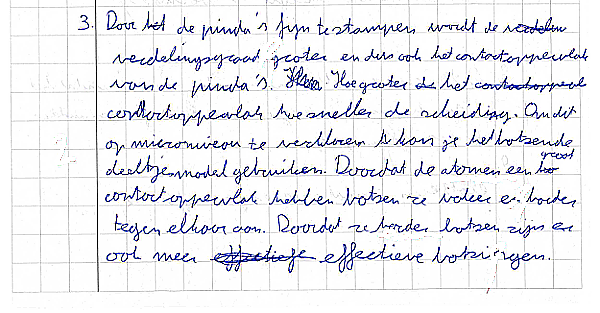 3. Door het de pinda's fyn te stampen wordt de verdelin
verdelingsgraad groter en dus ook het contactoppervlak
van de pinda's. Hoe groter de het contactoppervl
contactoppervlak hoe sneller de scheiding. Om dit
op microniveau te verklaren kan je het botsende
deeltjesmodel gebruiken. Doordat de atomen een groot
contactoppervlak hebben botsen ze vaker en harder
tegen elkaar aan. Doordat ze harder botsen zijn er
ook meer effectiefe effectieve botsingen.